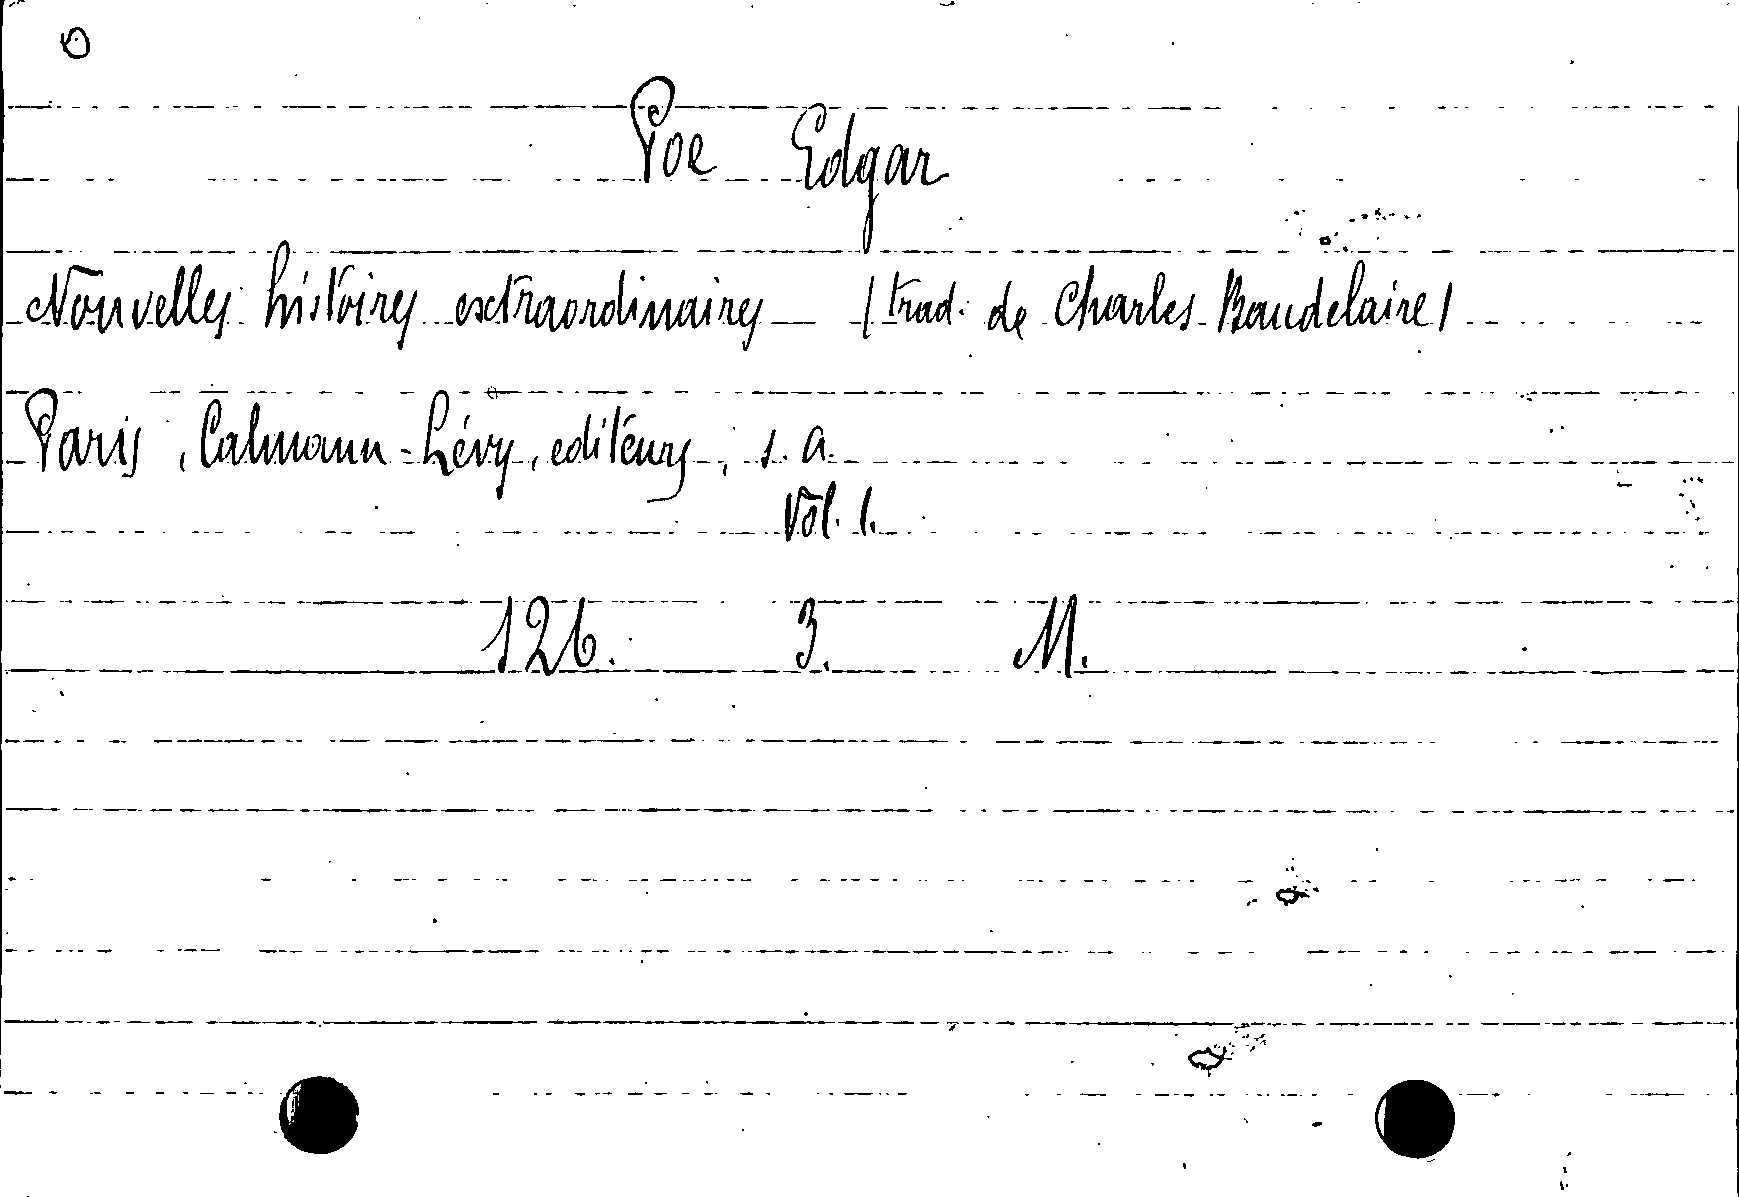 Poe Edgar
Nouvelles histoires extraordinaires (trad. de Charles Baudelaire)
Paris, Calmann-Lévy, editeurs, s. a.
Vol. 1.
126. 3. M.